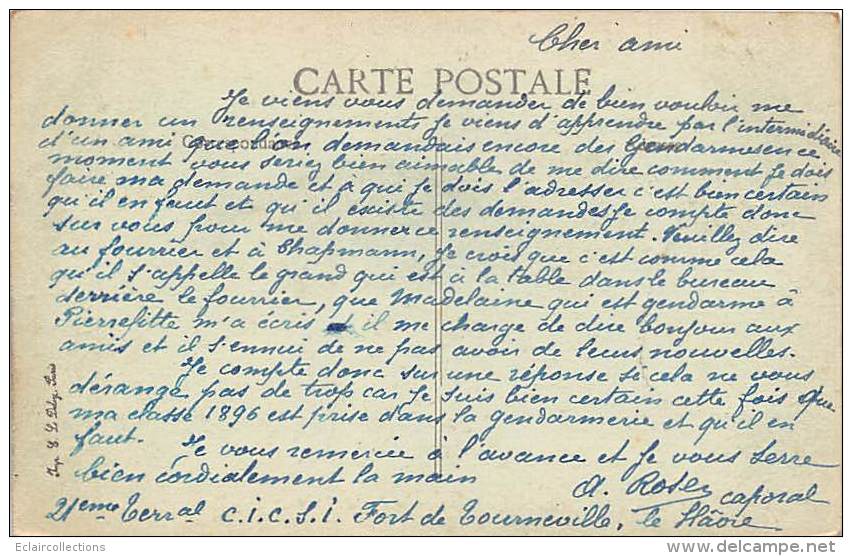 Cher ami
CARTE POSTALE
Je viens vous demander de bien vouloir me
donner un renseignements je viens d'apprendre par l'intermidiaire
d'un ami que l'on demandais encore des Gendarmes en ce
moment vous seriez bien aimable de me dire comment je dois
faire ma demande et à qui je dois l'adresser c'est bien certain
qu'il en feut et qu'il exciste des demandes je compte donc
sur vous pour me donner ce renseignement. Veuillez dire
au fourrier et à Chapmann, je crois que c'est comme cela
qu'il s'appelle le grand qui est à la table dans le bureau
derrière le fourrier, que Madelaine qui est gendarme à
Pierrefitte m'a écris et il me charge de dire bonjour aux
amis et il s'ennui de ne pas avoir de leurs nouvelles.
Je compte donc sur une réponse si cela ne vous
dérange pas de trop car je suis bien certain cette fois que
ma classe 1896 est prise dans la gendarmerie et qu'il en
faut.
Je vous remercie à l'avance et je vous serre
bien cordialement la main
A. Rosey caporal
21eme Terral C.I.C.S.I. Fort de Tourneville, le Hâvre.
Correspondance
Eclaircollections
delcampe.net